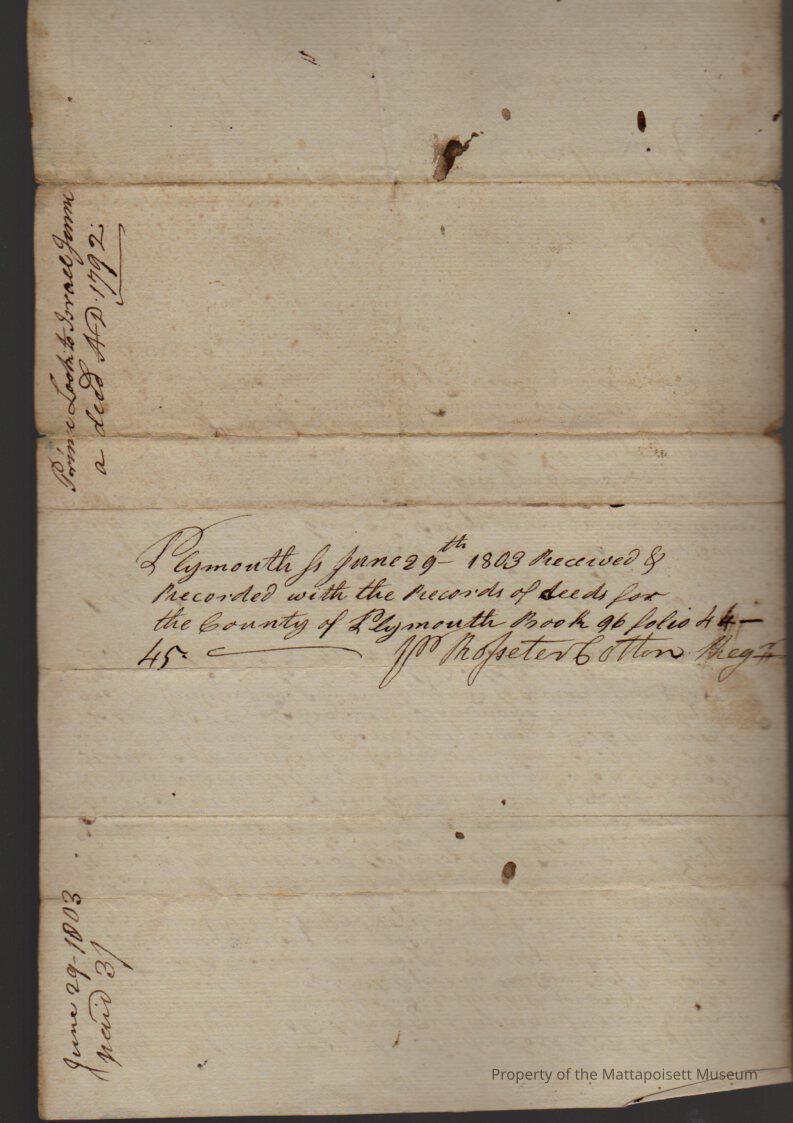 Prince Look to Israel
a deed A-D-1792.
Plymouth ſs June 29th 1803 Received &
Recorded with the Records of deeds for
the County of Plymouth Book 96 folio 44-
45.
Roſseter Cotton Regr
June 29-1803
paid 3/
Property of the Mattapoisett Museum